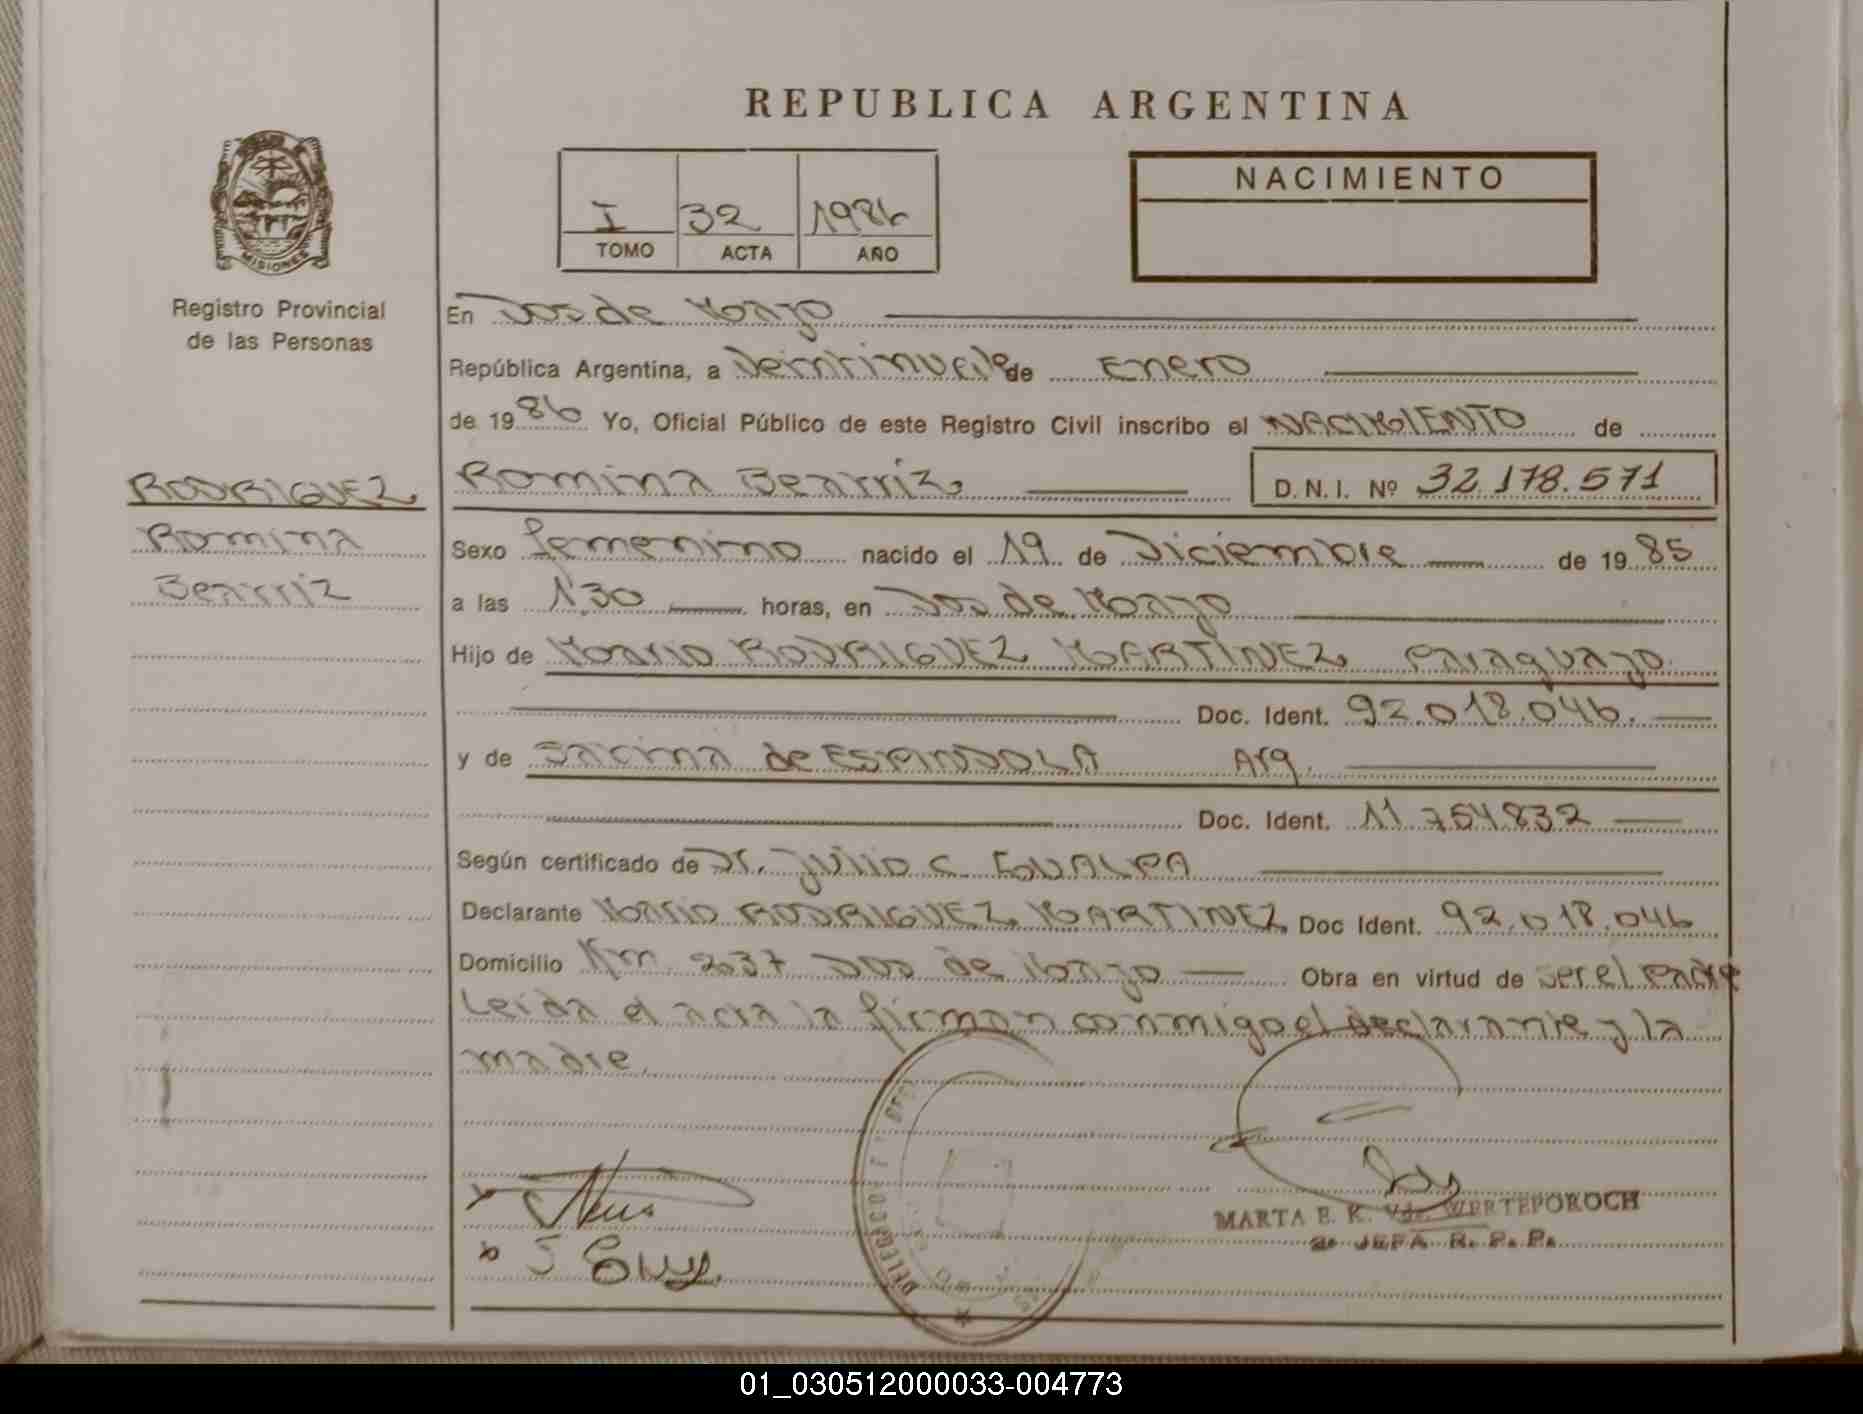 REPUBLICA ARGENTINA
MISIONES
Registro Provincial
de las Personas
I 32 1986
TOMO ACTA AÑO
NACIMIENTO
En Dos de Mayo
República Argentina, a Veintinueve de Enero
de 1986 Yo, Oficial Público de este Registro Civil inscribo el NACIMIENTO de
RODRIGUEZ
Romina
Beatriz
Romina Beatriz. D.N.I. Nº 32.178.571
Sexo femenino nacido el 19 de Diciembre de 1985
a las 1,30 horas, en Dos de Mayo
Hijo de Mario RODRIGUEZ MARTINEZ Paraguayo.
Doc. Ident. 92.018.046.
y de de ESPINDOLA Arg.
Doc. Ident. 11.754.832
Según certificado de Dr. Julio C.
Declarante Mario RODRIGUEZ MARTINEZ Doc Ident. 92.018.046
Domicilio Km. 237 Dos de Mayo Obra en virtud de ser el padre
Leida el acta la firman conmigo el declarante y la
madre.
MARTA E. K. Vda. WERTEPOROCH
JEFA R. P. P.
01_030512000033-004773